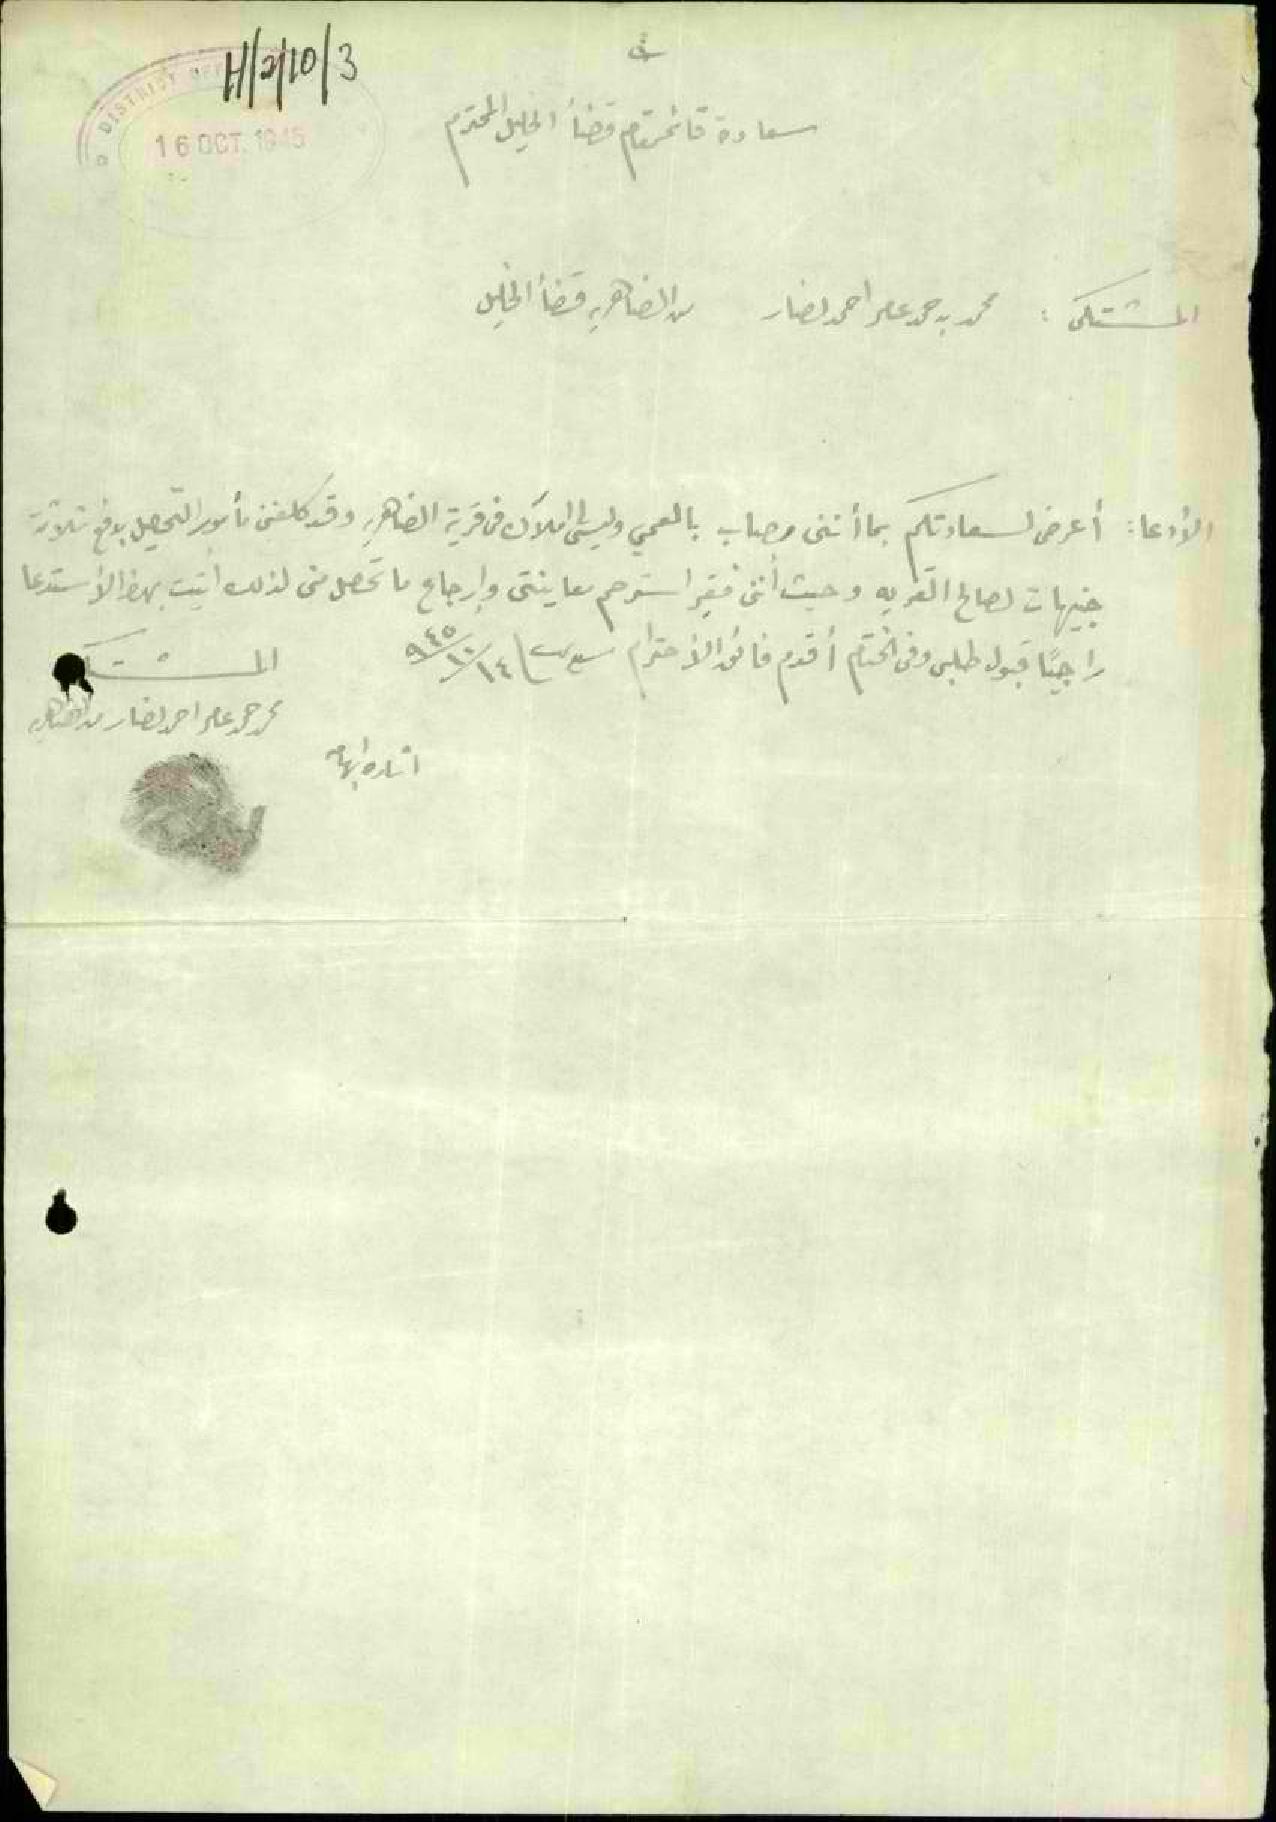 H/2/10/3
DISTRICT OFF
16 OCT. 1945
سعادة قائمقام قضأ الخليل المحترم
المشتكى : محمد حمد احمد من الضاهريه قضأ الخليل
الأدعا : أعرض لسعادتكم بما أننى مصاب بالعمي وليس لى املاك فى قرية الضاهريه وقد كلفنى مأمور التحصيل بدفع ثلاثة
جنيهات لصالح القريه وحيث أننى فقير استرحم معاينتى وإرجاع ما تحصل منى لذلك أتيت بهذا الأستدعا
راجيًا قبول طلبى وفى الختام أقدم فائق الأحترام سيدى ١٤/١٠/٩٤٥
المشتكى
محمد حمد احمد من الضاهريه